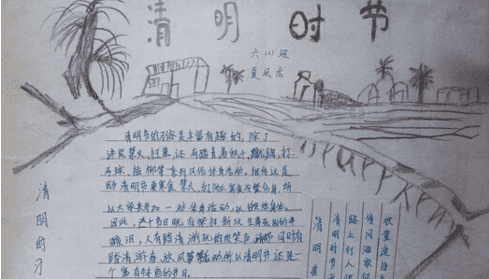 清明时节
六(1)班
夏风龙
清明节的习俗是丰富有趣的,除了
讲究禁火、扫墓,还有踏青、荡秋千、蹴鞠、打
马球、插柳等一系列风俗体育活动。相传这是
因为清明节要寒食禁火,为了防止寒食冷餐伤身,所
以大家来参加一些体育活动,以锻炼身体。
因此,这个节日既有祭扫新坟生离死别的辛
酸泪,又有踏青游玩的欢笑声,
踏清游春、放风筝 所以清明节还是一
个富有特色的节日。
清明的习
清明
清明时节
路上行人
借问酒家
牧童遥